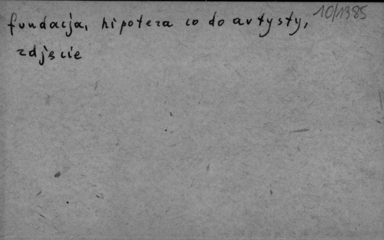 10/1385
fundacja, hipoteza co do artysty,
zdjęcie